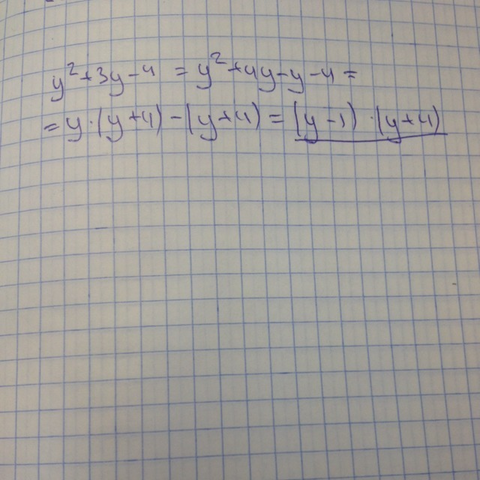 y²+3y-4 = y²+4y-y-4=
=y·(y+4)-(y+4)=(y-1)·(y+4)